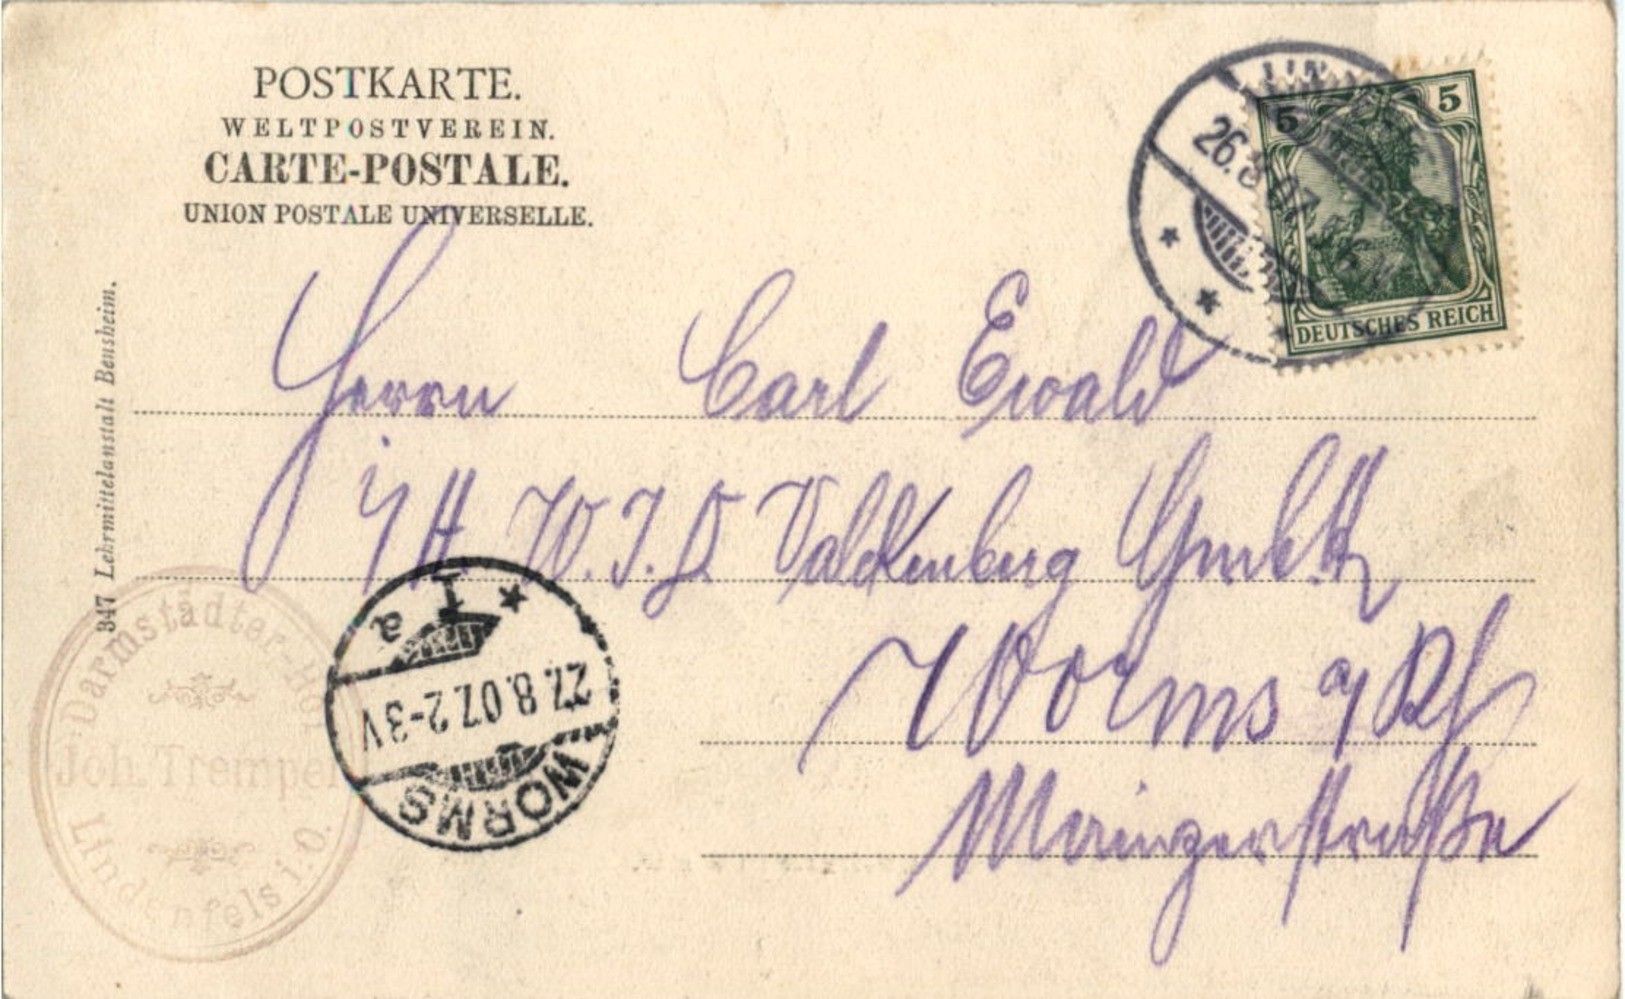 POSTKARTE.
WELTPOSTVEREIN.
CARTE-POSTALE.
UNION POSTALE UNIVERSELLE.
26.8.07
5 5
DEUTSCHES REICH
347 Lehrmittelanstalt Bensheim.
Herrn Carl Ewald
i/H. W. J. D. Valckenberg GmbH
Worms a/Rh
Mainzerstraße
Darmstädter-Hof
Joh. Tremper
Lindenfels i. O.
1 a
27.8.07. 2-3V
WORMS